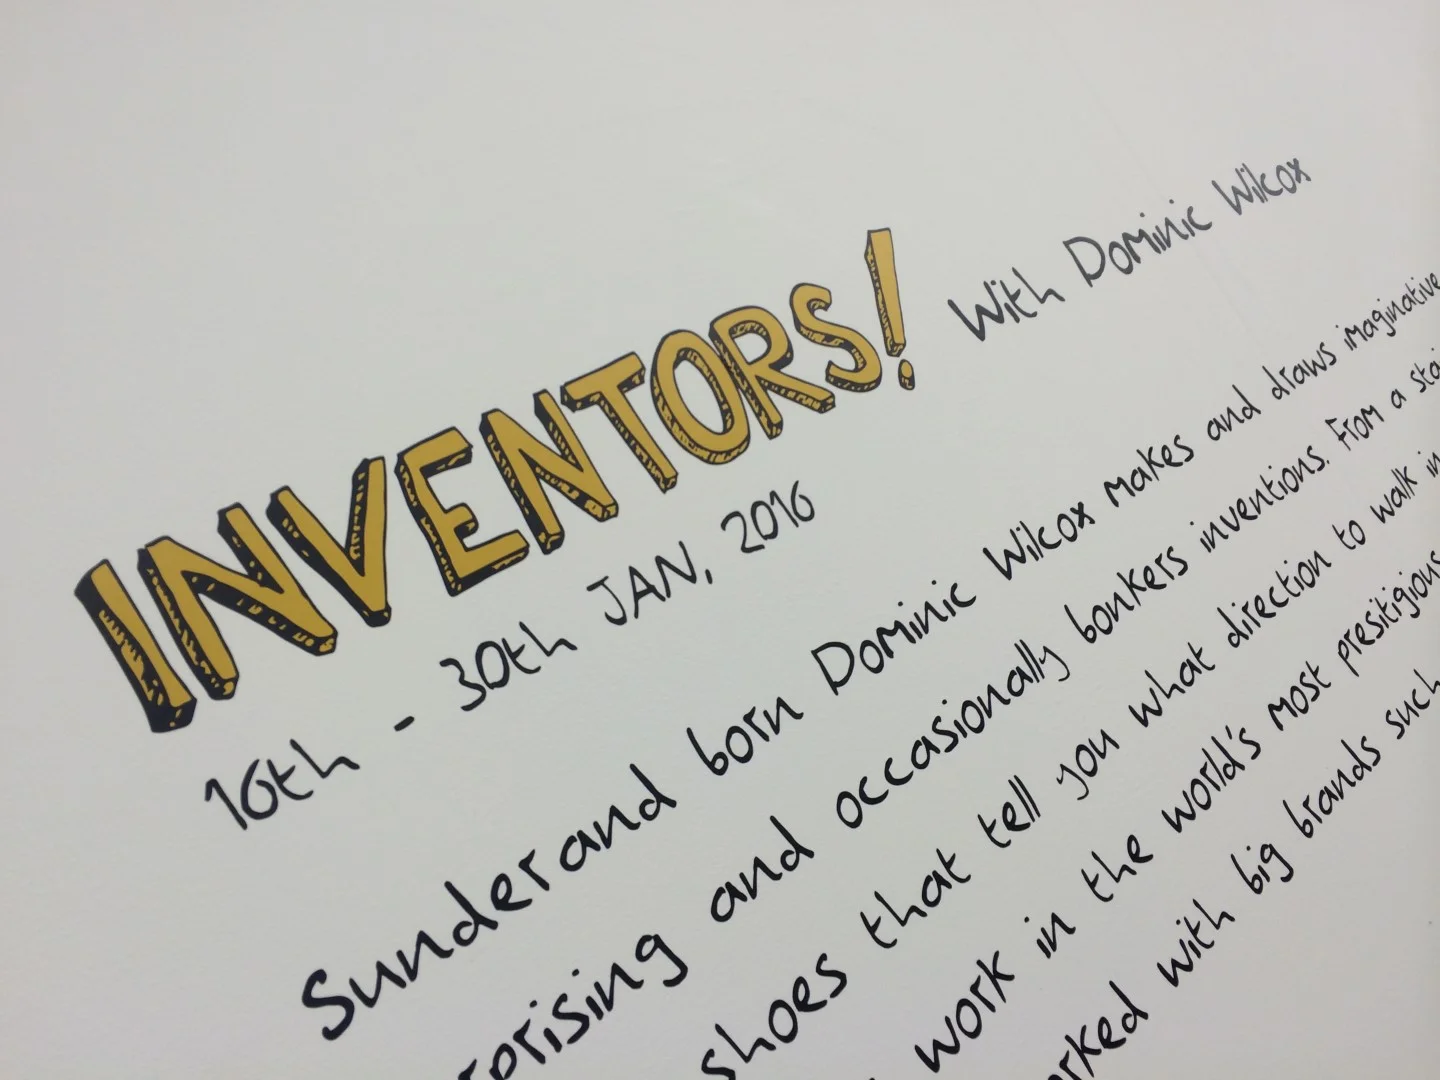 INVENTORS! With Dominic Wilcox
16th - 30th JAN, 2016
Sunderland born Dominic Wilcox makes and draws imaginative
and occasionally bonkers inventions. From a
shoes that tell you what direction to walk in
work in the world's most presitigious
with big brands such